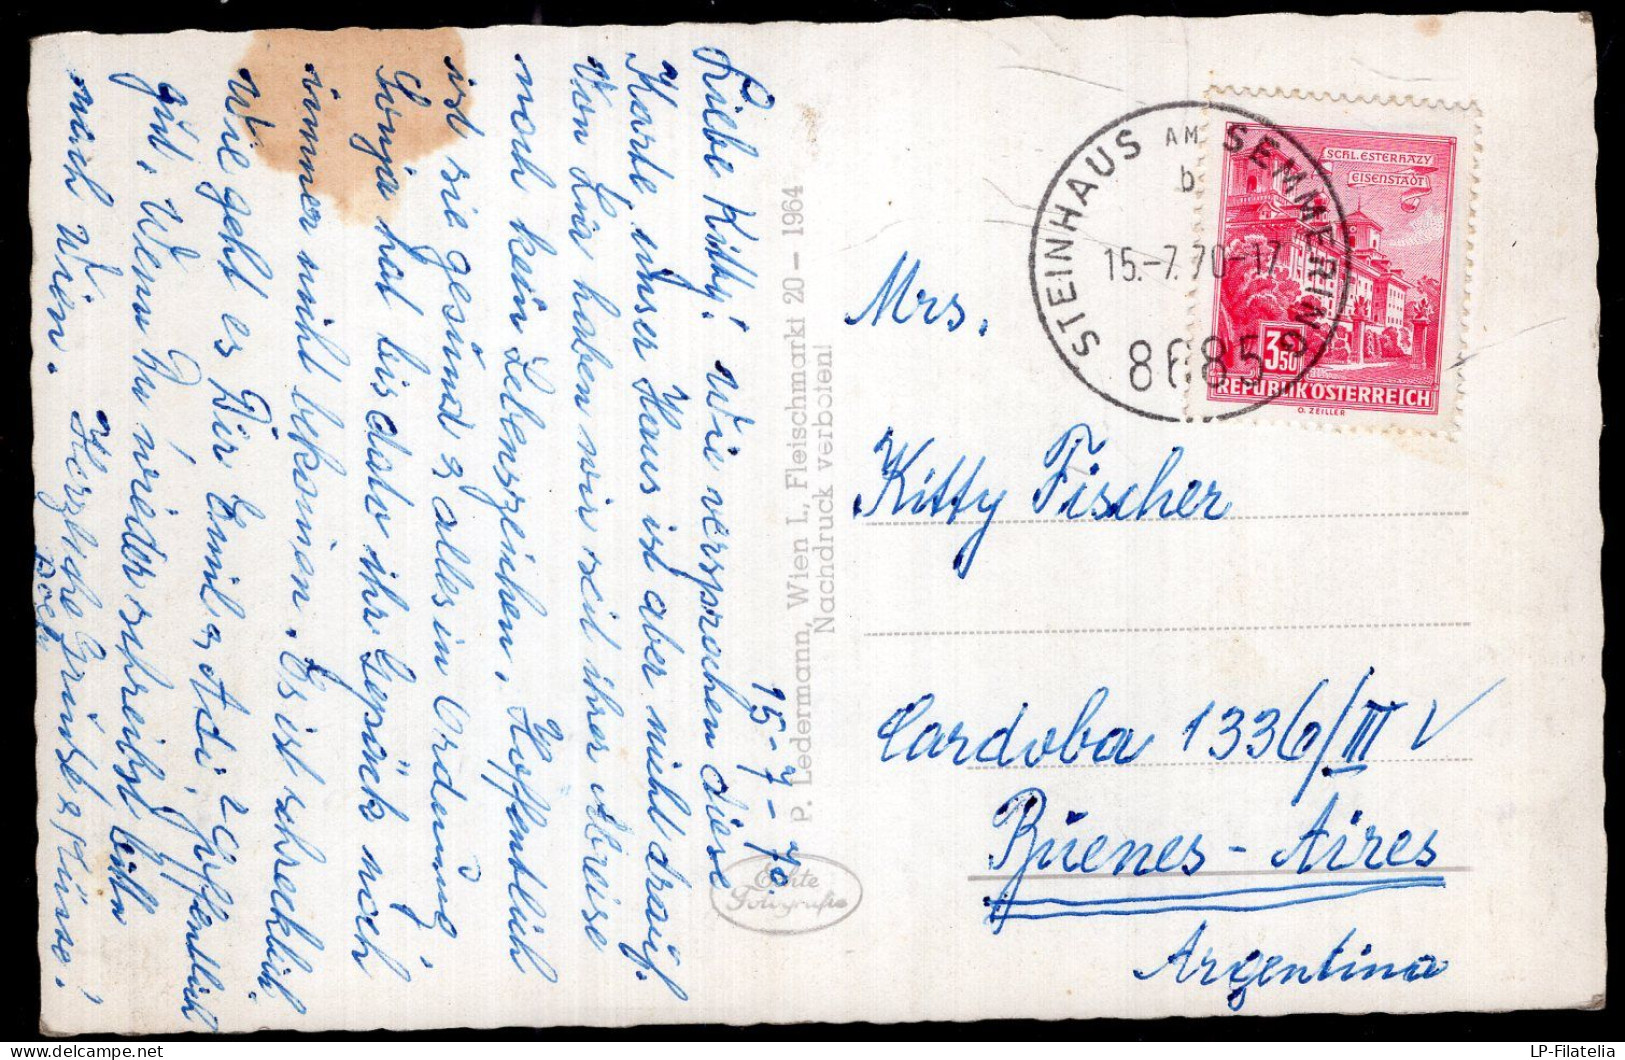 15-7-70.
Liebe Kitty! Wie versprochen diese
Karte, unser Haus ist aber nicht drauf.
Von Lia haben wir seit ihrer Abreise
noch kein Lebenszeichen. Hoffentlich
ist sie gesund & alles in Ordnung
Sonja hat bis dato ihr Gepäck noch
immer nicht bekomen. Es ist schrecklich.
Wie geht es Dir Emil & Adi, hoffentlich
gut. Wenn Du wieder schreibst bitte
nach Wien. Herzliche Grüsse & Küsse!
P. Ledermann, Wien I., Fleischmarkt 20 — 1964
Nachdruck verboten!
Echte
Fotografie
STEINHAUS AM SEMMERING
b
15.-7.70-17
8685
SCHL. ESTERHAZY
EISENSTADT
3.50
REPUBLIK ÖSTERREICH
O. ZEILLER
Mrs.
Kitty Fischer
Cardoba 1336/III V
Buenes-Aires
Argentina
LP-Filatelia